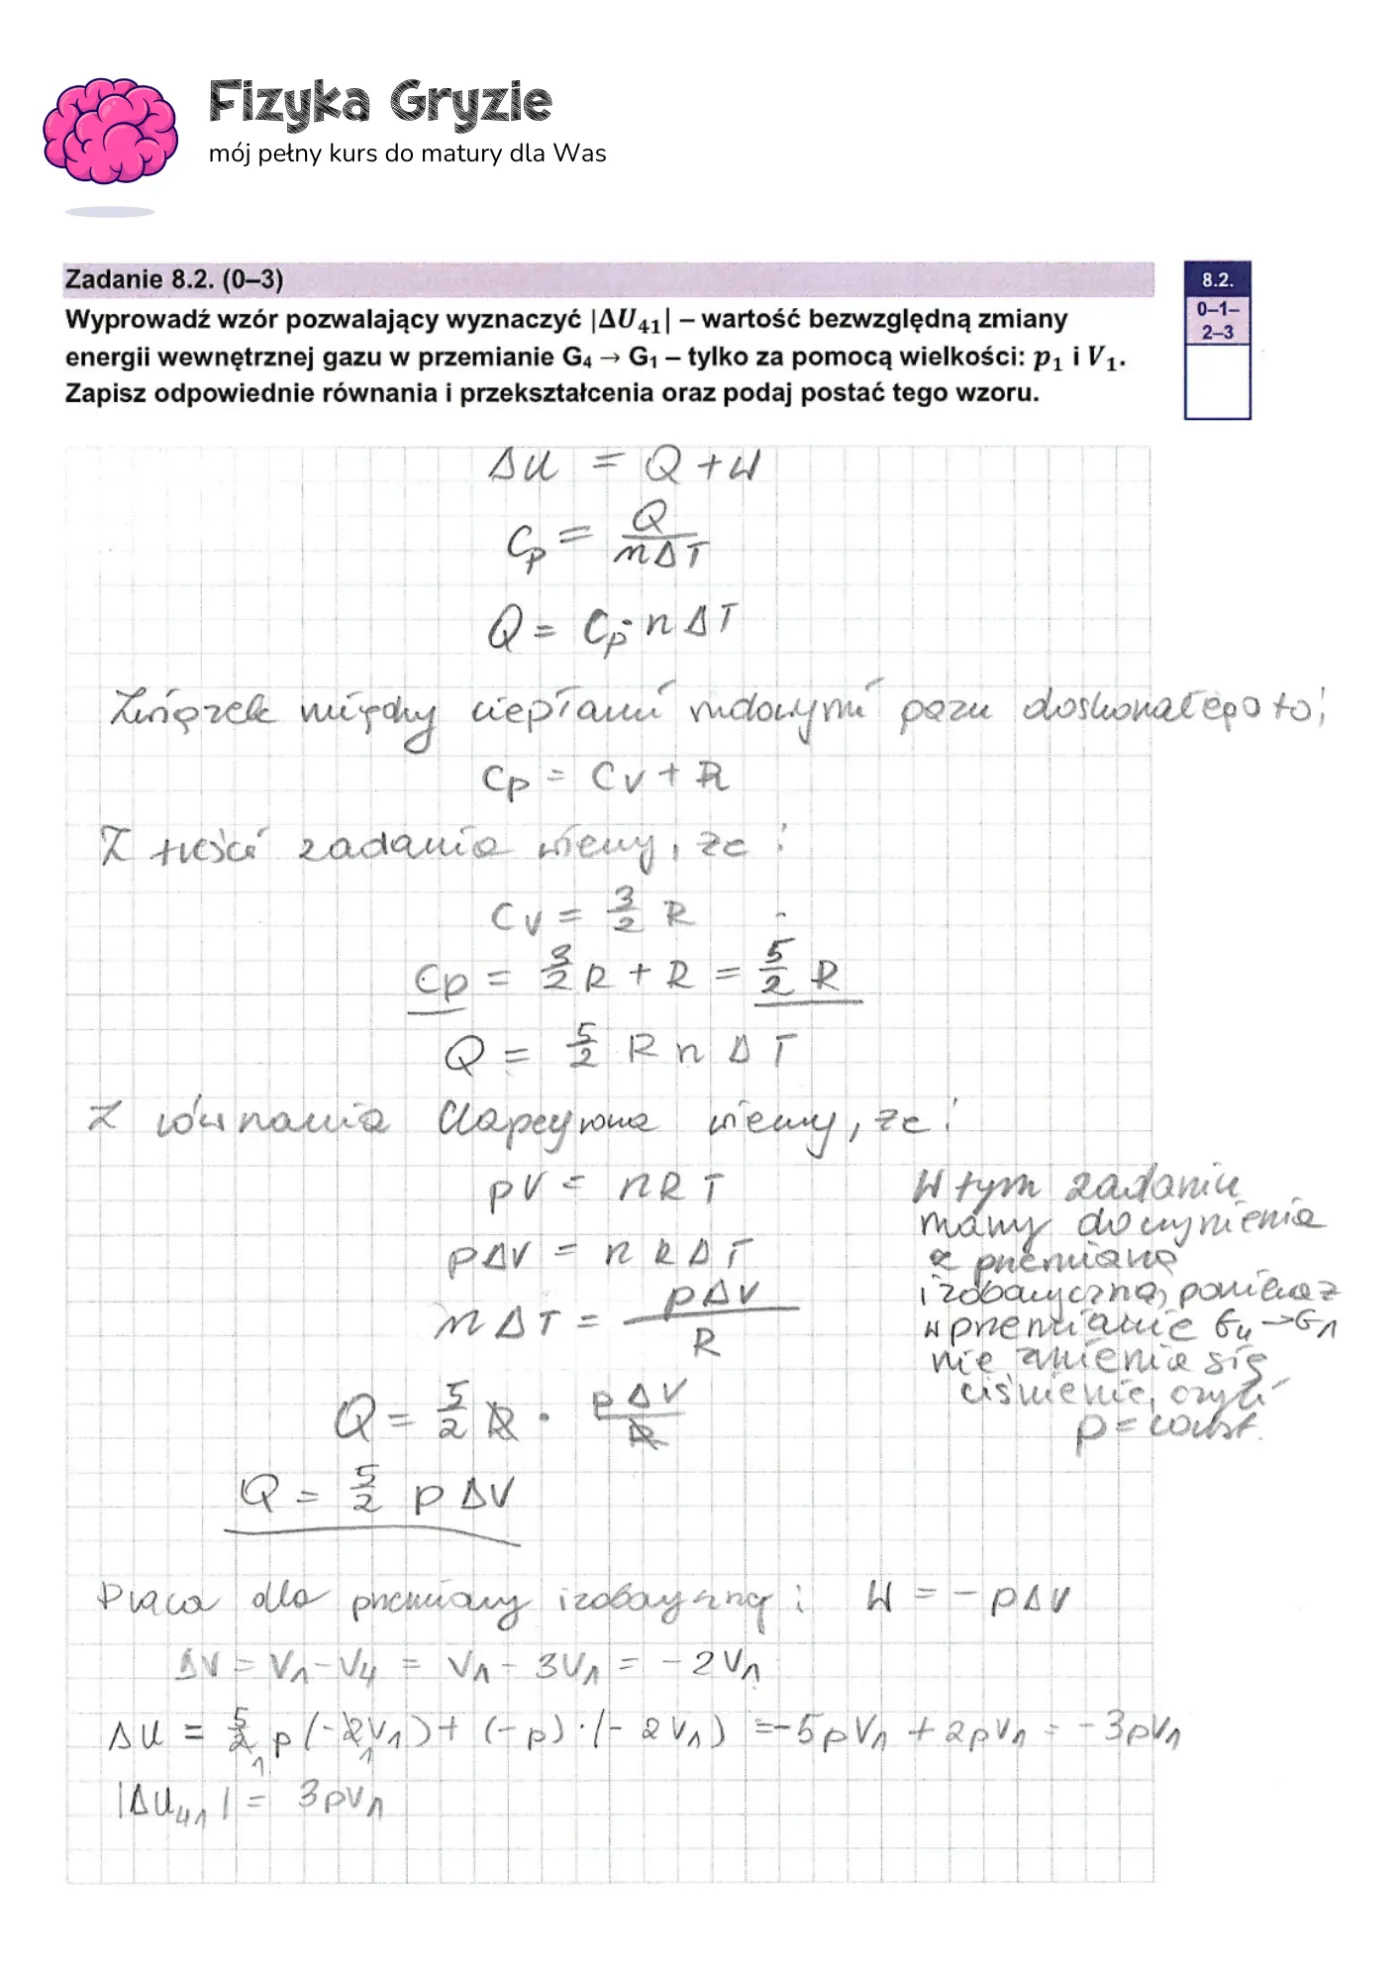 Fizyka Gryzie
mój pełny kurs do matury dla Was
Zadanie 8.2. (0–3)
8.2.
0–1–
2–3
Wyprowadź wzór pozwalający wyznaczyć |ΔU₄₁| – wartość bezwzględną zmiany
energii wewnętrznej gazu w przemianie G₄ → G₁ – tylko za pomocą wielkości: p₁ i V₁.
Zapisz odpowiednie równania i przekształcenia oraz podaj postać tego wzoru.
ΔU = Q + W
Cp = Q / nΔT
Q = Cp · n ΔT
Związek między ciepłami molowymi gazu doskonałego to:
Cp = Cv + R
Z treści zadania wiemy, że:
Cv = 3/2 R
Cp = 3/2 R + R = 5/2 R
Q = 5/2 R n ΔT
Z równania Clapeyrona wiemy, że:
pV = nRT
pΔV = nRΔT
nΔT = pΔV / R
Q = 5/2 R · pΔV / R
Q = 5/2 pΔV
W tym zadaniu
mamy do czynienia
z przemianą
izobaryczną, ponieważ
w przemianie G₄→G₁
nie zmienia się
ciśnienie, czyli
p = const.
Praca dla przemiany izobarycznej: W = -pΔV
ΔV = V₁ - V₄ = V₁ - 3V₁ = -2V₁
ΔU = 5/2 p(-2V₁) + (-p)·(-2V₁) = -5pV₁ + 2pV₁ = -3pV₁
|ΔU₄₁| = 3pV₁